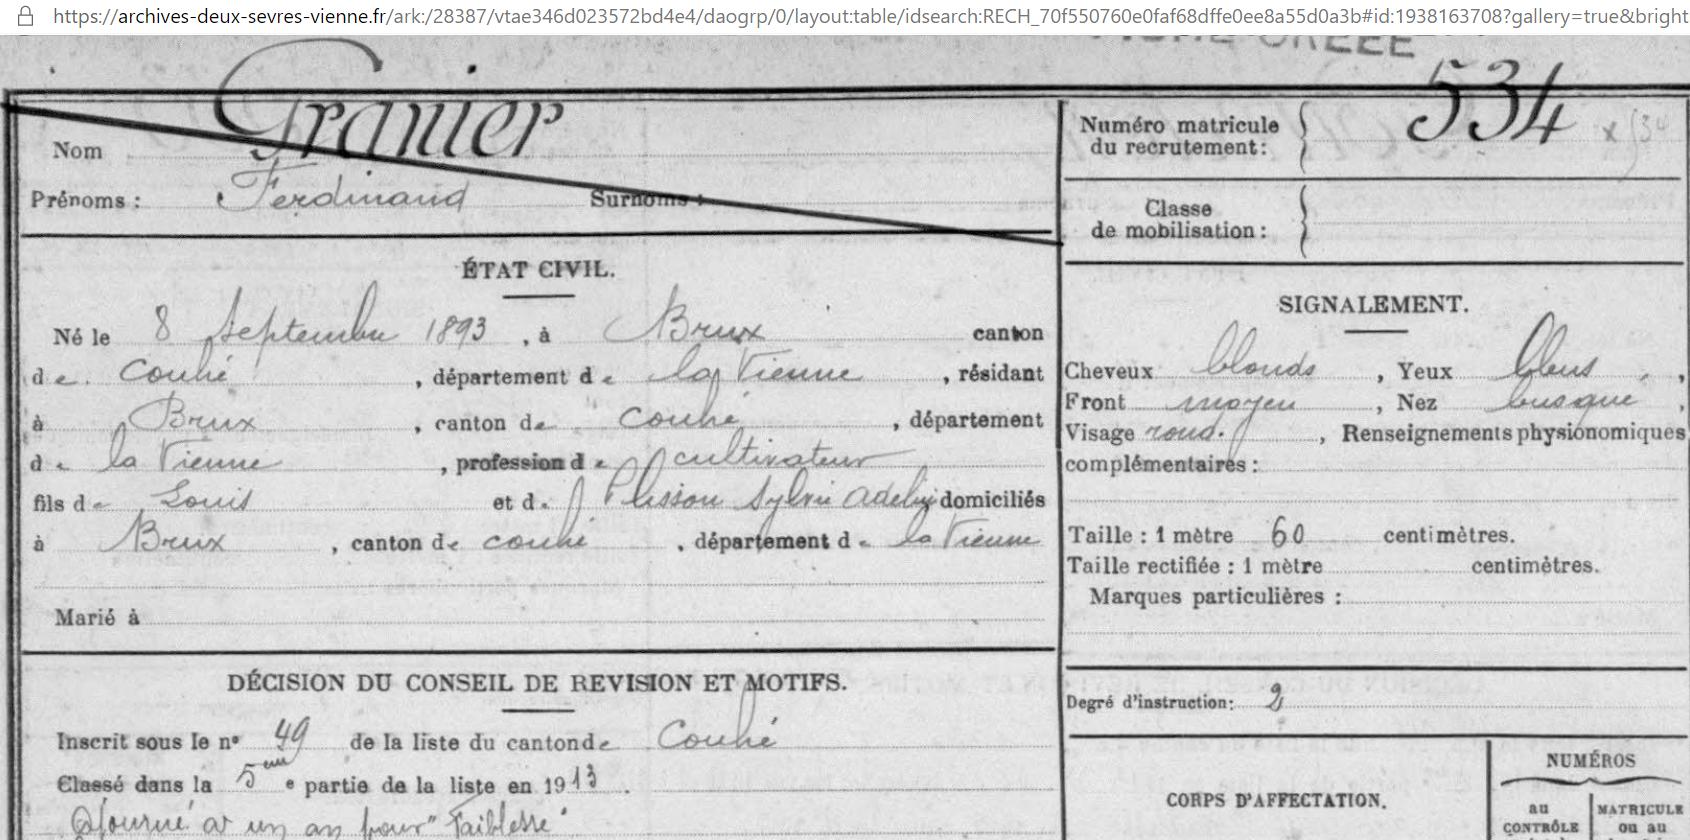 https://archives-deux-sevres-vienne.fr/ark:/28387/vtae346d023572bd4e4/daogrp/0/layout:table/idsearch:RECH_70f550760e0faf68dffe0ee8a55d0a3b#id:1938163708?gallery=true&bright
Nom Granier
Prénoms : Ferdinand Surnoms :
ÉTAT CIVIL.
Né le 8 Septembre 1893, à Brux canton
de Couhé, département de la Vienne, résidant
à Brux, canton de Couhé, département
de la Vienne, profession de cultivateur
fils de Louis et de Plisson Sylvie Adeline domiciliés
à Brux, canton de Couhé, département de la Vienne
Marié à
DÉCISION DU CONSEIL DE REVISION ET MOTIFS.
Inscrit sous le n° 49 de la liste du canton de Couhé
Classé dans la 5me e partie de la liste en 1913.
Ajourné à un an pour "Faiblesse"
534
Numéro matricule
du recrutement :
Classe
de mobilisation :
SIGNALEMENT.
Cheveux blonds, Yeux bleus,
Front moyen, Nez busqué,
Visage rond., Renseignements physionomiques
complémentaires :
Taille : 1 mètre 60 centimètres.
Taille rectifiée : 1 mètre centimètres.
Marques particulières :
Degré d'instruction : 2
CORPS D'AFFECTATION.
NUMÉROS
au
CONTRÔLE
MATRICULE
ou au